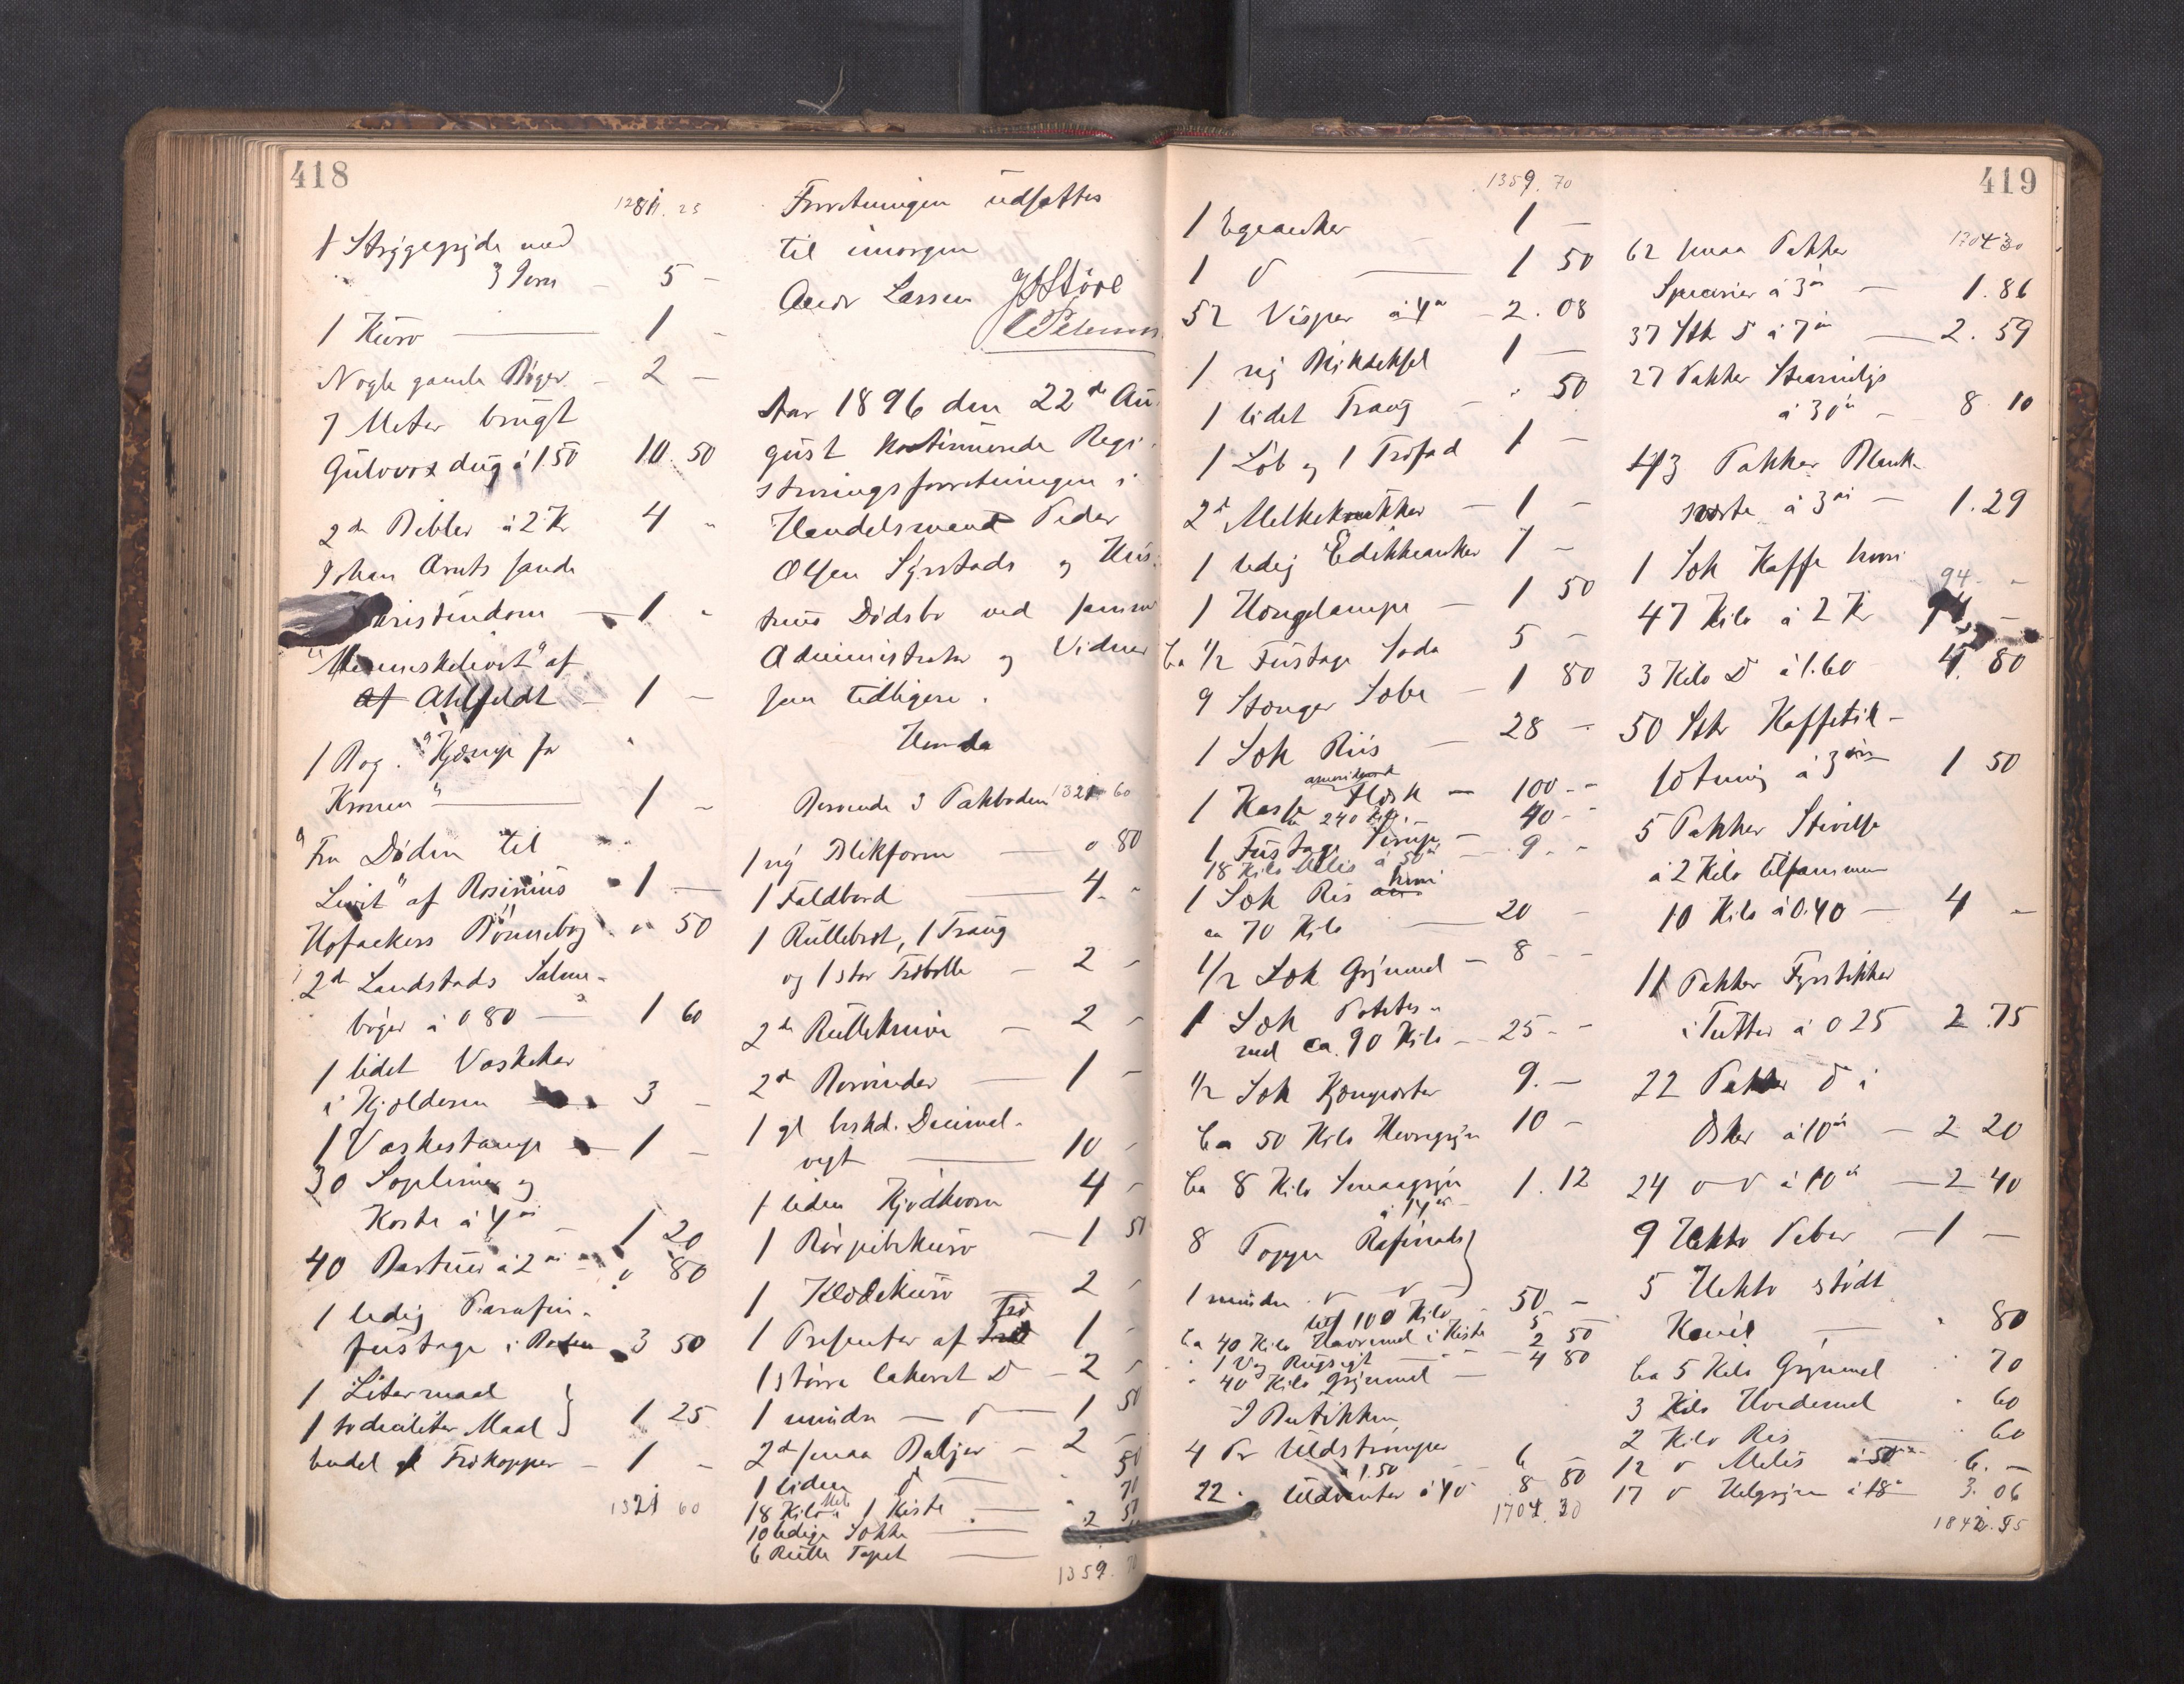 418
1281. 25
1 Strygegryde med
3 Jern — 5 –
1 Kurv — 1 –
Nogle gamle Bøger – 2 –
7 Meter brugt
Gulvvoxdug á 1.50 10. 50
2de Bibler á 2 Kr 4 "
Johan Arnts sande
Kristendom — 1 "
"Menneskelivet" af
af Ahlfeldt – 1 –
1 Bog. "Kjæmp for
Kronen" — 1 –
"Fra Døden til
Livet" af Rosinius – 1 –
Hofackers Bønnebog " 50
2de Landstads Salme-
bøger á 0 80 — 1 60
1 lidet Vaskekar
i Kjelderen — 3 –
1 Vaskestamp – 1 –
30 Soplimer og
Koste á 4 ør – 1 20
40 á 2 ør – " 80
1 ledig Parafin-
fustage i Boden 3 50
1 Litermaal
1 to deciliter Maal } 1 25
endel gl Trækopper – 1 –
1321 60
Forretningen udsattes
til imorgen
Andr Larsen
Aar 1896 den 22de Au-
gust kontinuerede Regi-
streringsforretningen i
Handelsmand Peder
Olsen Sørstads og Hus-
trues Dødsbo ved samme
Administrator og Vidner
som tidligere.
Beroende i Pakboden 1321 60
1 ny Blikform — 0 80
1 Faldbord — 4. "
1 Rullebræt, 1 Traug
og 1 stor Træbolle – 2 –
2de Rulleknive – 2 –
2de — 1 –
1 gl beskd. Decimal-
vegt — 10 –
1 liden Kjødkvern 4 –
1 Rørpibekurv – 1 50
1 Klædekurv — 2 –
1 Presenter af Træ 1 –
1 større lakeret D – 2 –
1 mindre — d — 1 50
2de smaa Baljer – 2 –
1 liden d — " 50
18 Kilo Mel i 1 Kiste — " 70
10 ledige Sække — 2 50
6 Rulle Tapet —
1359. 70
419
1359. 70
1 Egeanker 1 –
1 d — 1 50
52 Visper á 4 ør – 2. 08
1 ny 1 –
1 lidet Traug – " 50
1 Løb og 1 Træfad 1 –
2de Melkekrukker – 1 –
1 ledig Edikkeanker 1 –
1 Hængelampe – 1 50
Ca 1/2 Fustage Soda 5 –
9 Stænger Sæbe – 1 80
1 Sæk Riis – 28 –
1 Kasse amerikansk Flesk — 100 –
240 Kilo
1 Fustage Sirup – 40 –
18 Kilo Melis á 50 ør – 9. –
1 Sæk Ris hvori
ca 70 Kilo — 20 –
1/2 Sæk Grynmel – 8 –
1 Sæk Potetes-
mel ca. 90 Kilo – 25 –
1/2 Sæk 9. –
Ca 50 Kilo Havregryn 10 –
Ca 8 Kilo Smaagryn
á 14 ør 1. 12
8 Toppe Rafinade }
1 mindre d d
100 Kilo – 50 –
Ca 40 Kilo Havremel i Kiste 5 –
" 1 Vog Rugsigt — 2 50
" 40 Kilo Grynmel — 4 80
I Butikken
4 Par Uldstrømper
á 1.50 – 6 –
22 " Uldvanter á 40 8 80
1704. 30
1704 30
62 smaa Pakker
Specerier á 3 ør — 1. 86
37 Stk D á 7 ør — 2. 59
27 Pakker Stearinlys
á 30 ør – 8 10
43 Pakker Blank-
sværte á 3 ør – 1. 29
1 Sæk Kaffe hvori
47 Kilo á 2 Kr 94. –
3 Kilo D á 1.60 4. 80
50 Stkr Kaffetil-
sætning á 3 ør 1 50
5 Pakker Stivelse
á 2 Kilo tilsammen
10 Kilo á 0.40 — 4 –
11 Pakker Fyrstikker
i Tutter á 0 25 2. 75
22 Pakker d i
Æsker á 10 ør – 2 20
24 d d á 10 ør — 2 40
9 Hekto Peber – 1 –
5 Hekto stødt
Kanel — " 80
Ca 5 Kilo Grynmel " 70
3 Kilo Hvedemel " 60
2 Kilo Ris — " 60
12 d Melis á 50 ør 6. –
17 d Helgryn á 18 ør 3. 06
1842. 55